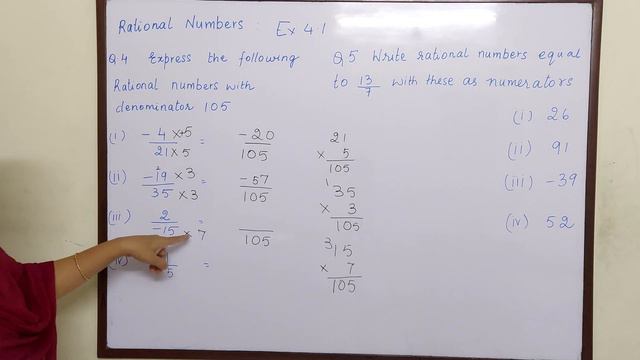 Rational Numbers : Ex 4.1
Q.4 Express the following
Rational numbers with
denominator 105
(i) -4 ×+5 = -20
21 × 5 105
(ii) -19 × 3 = -57
35 × 3 105
(iii) 2 =
-15 × 7 105
(iv) =
5
21
× 5
105
1
35
× 3
105
3
15
× 7
105
Q.5 Write rational numbers equal
to 13/7 with these as numerators
(i) 26
(ii) 91
(iii) -39
(iv) 52